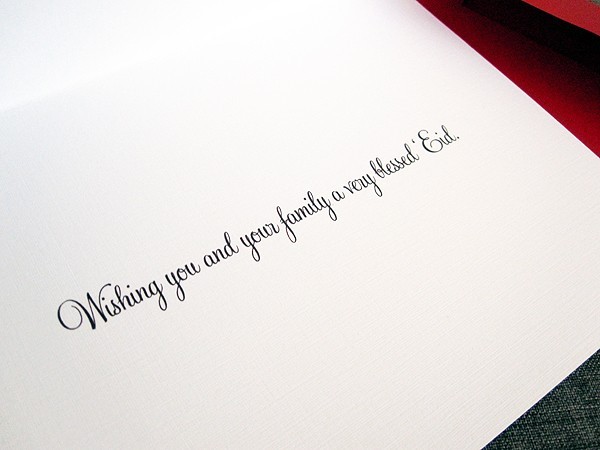 Wishing you and your family a very blessed 'Eid.